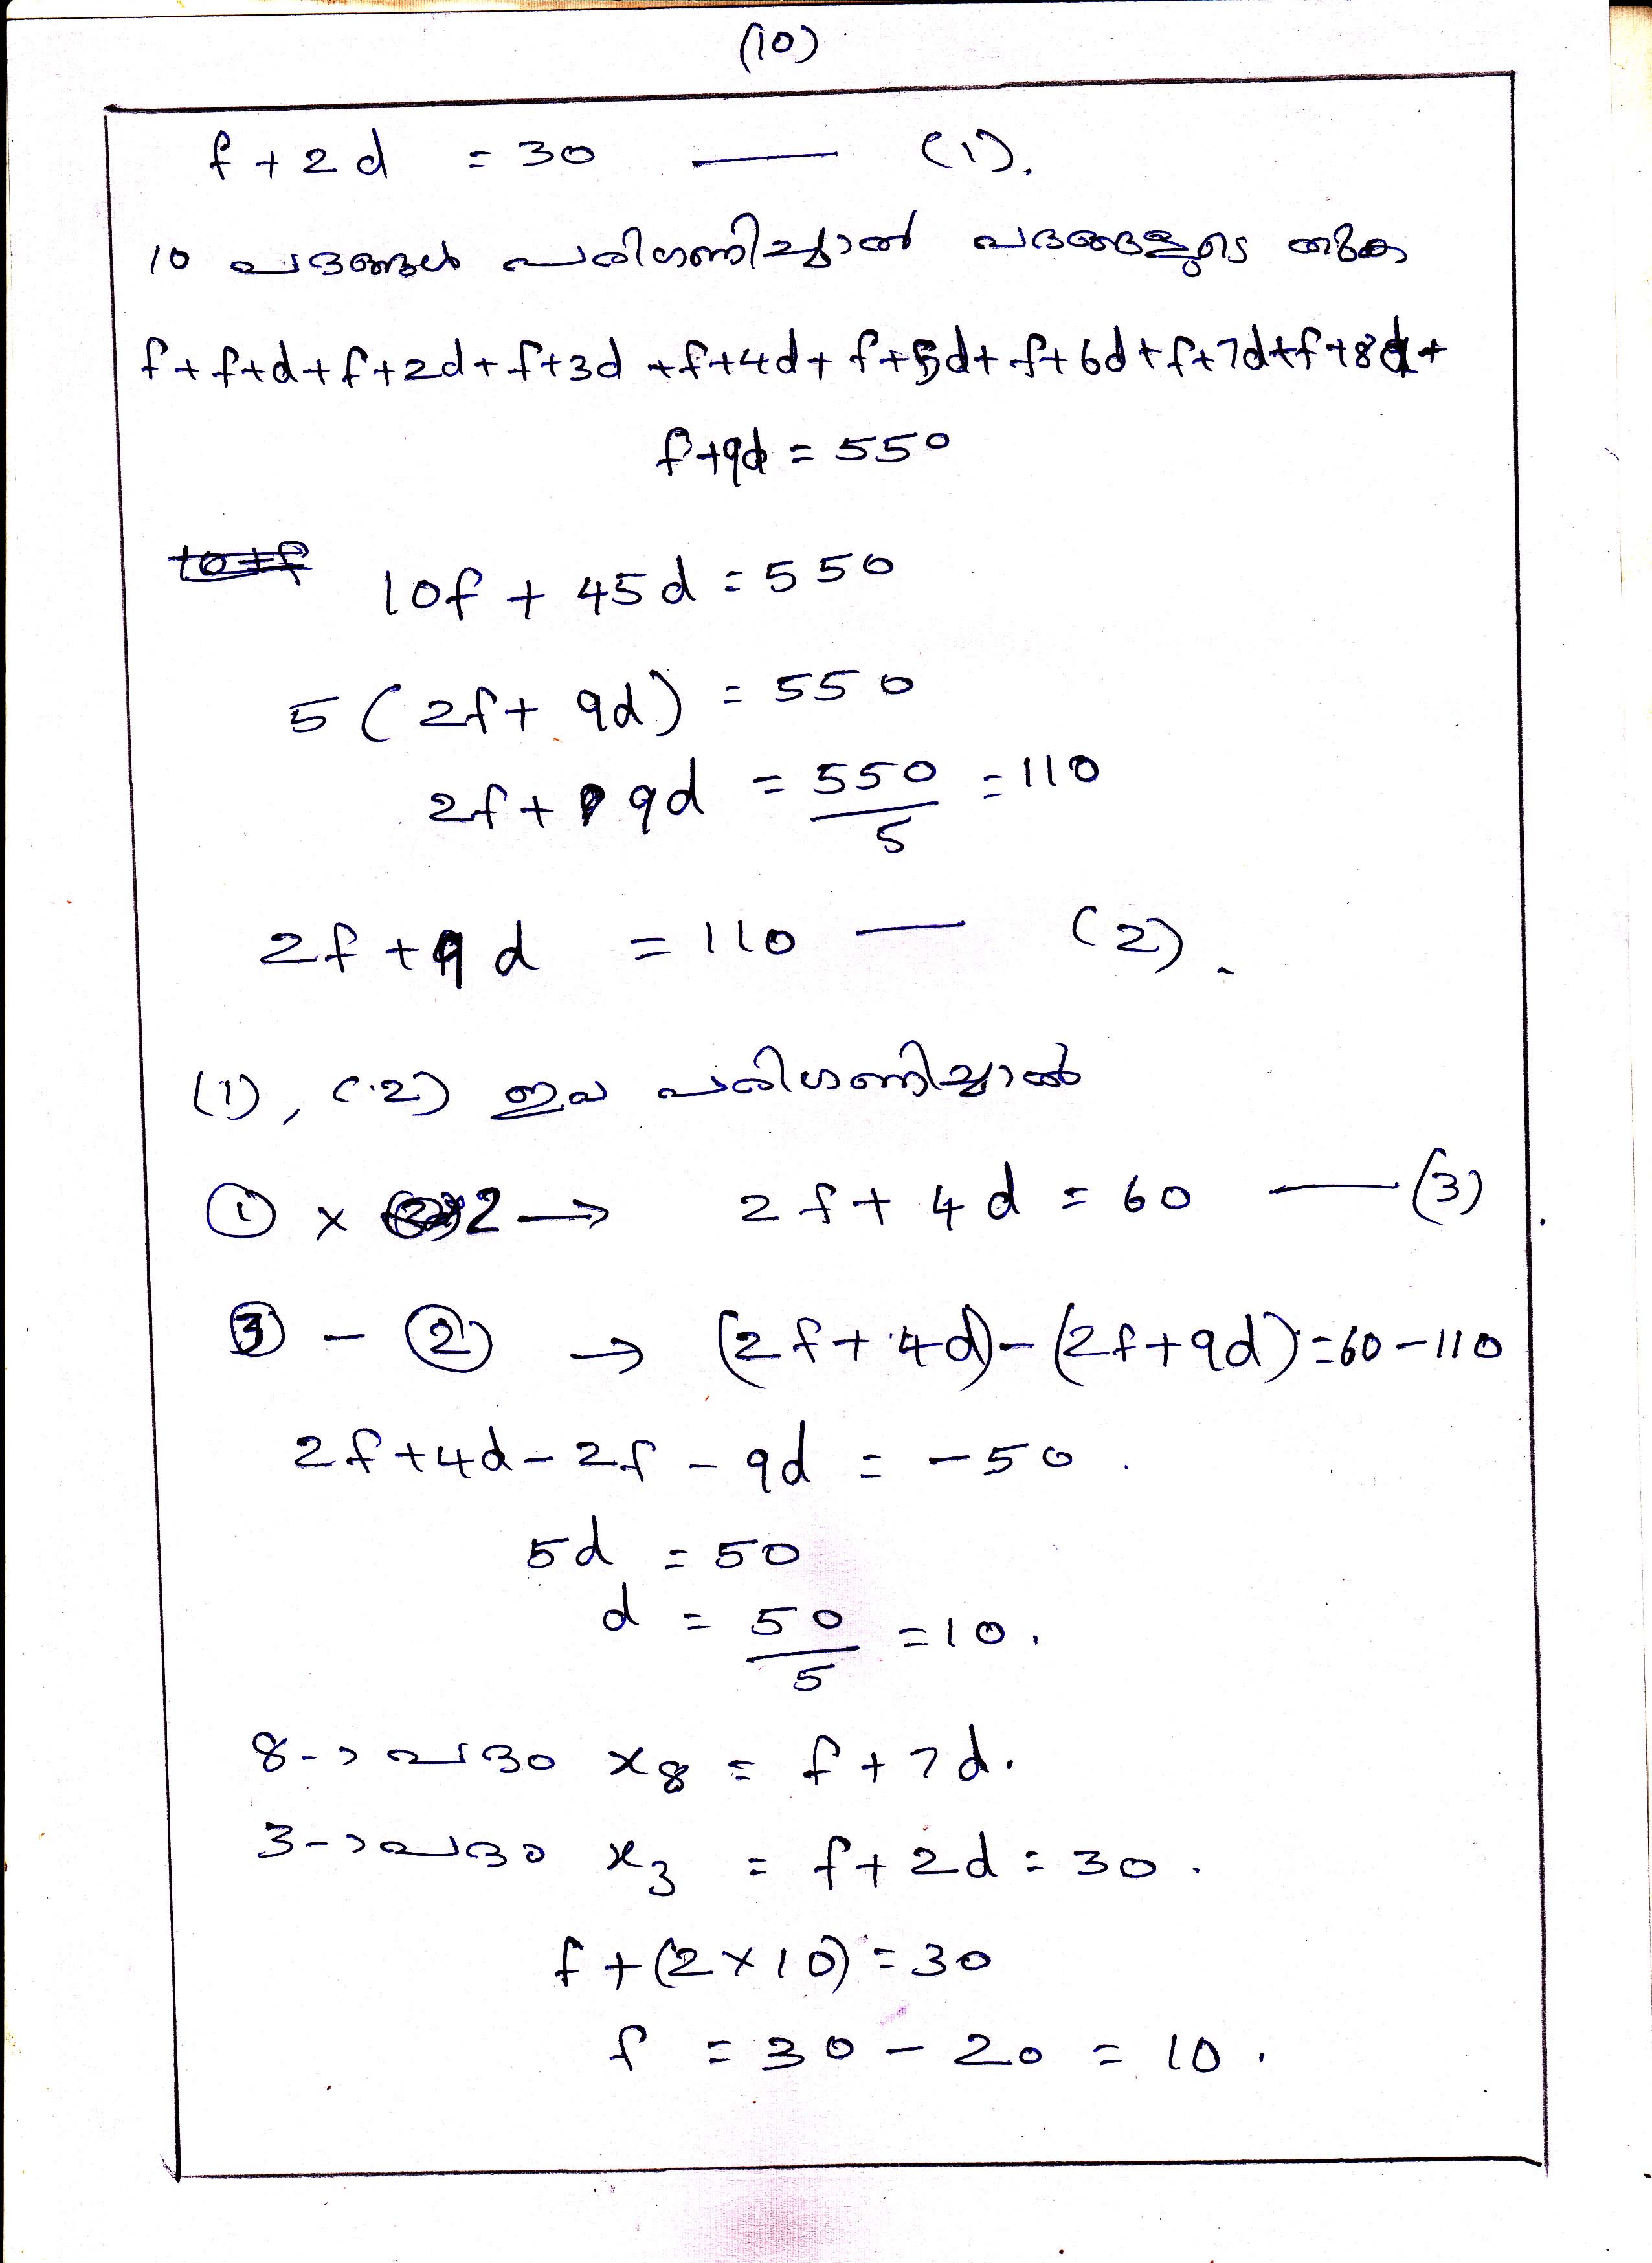 (10)
f + 2d = 30 — (1).
10 പദങ്ങൾ പരിഗണിച്ചാൽ പദങ്ങളുടെ തുക
f + f+d + f+2d + f+3d + f+4d + f+5d + f+6d + f+7d + f+8d +
f+9d = 550
10f + 45d = 550
5(2f + 9d) = 550
2f + 9d = 550/5 = 110
2f + 9d = 110 — (2).
(1), (2) ഇവ പരിഗണിച്ചാൽ
① × 2 → 2f + 4d = 60 — (3)
③ − ② → (2f + 4d) − (2f + 9d) = 60 − 110
2f + 4d − 2f − 9d = −50.
5d = 50
d = 50/5 = 10.
8-ാ പദം x₈ = f + 7d.
3-ാ പദം x₃ = f + 2d = 30.
f + (2 × 10) = 30
f = 30 − 20 = 10.